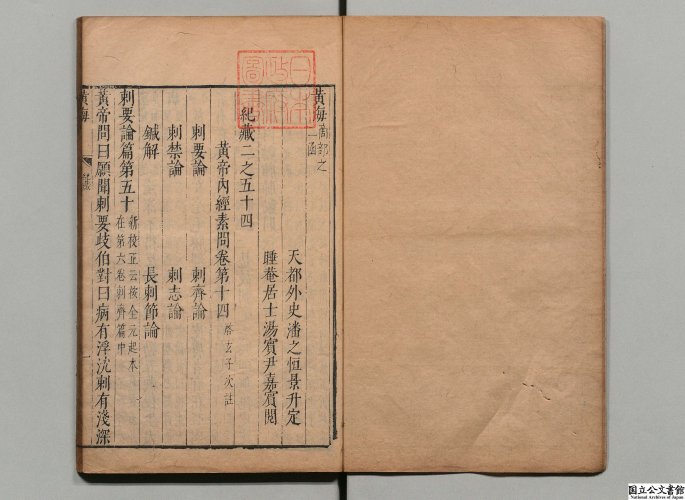 黃海
紀藏二之五十四
天都外史潘之恒景升定
睡菴居士湯賓尹嘉賓閱
黃帝內經素問卷第十四 啓玄子次註
刺要論 刺齊論
刺禁論 刺志論
鍼解 長刺節論
刺要論篇第五十 新校正云按全元起本在第六卷刺齊篇中
黃帝問曰願聞刺要歧伯對曰病有浮沈刺有淺深
黃海
日本政府圖書
国立公文書館
National Archives of Japan